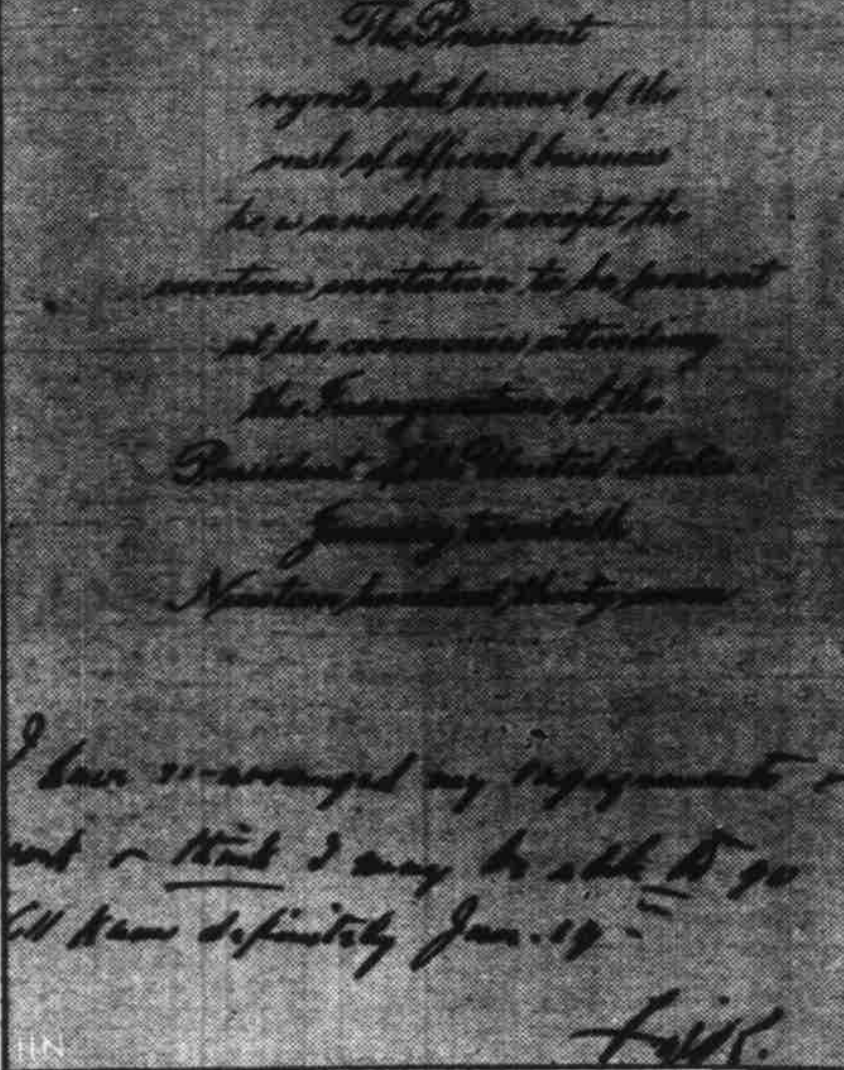 The President
regrets that because of the
rush of official business
he is unable to accept the
courteous invitation to be present
at the ceremonies attending
the Inauguration of the
President of the United States
January twentieth
Nineteen hundred thirty seven
I have re-arranged my engagements &
work & think I may be able to go
ill know definitely Jan. 19
F.D.R.
NH